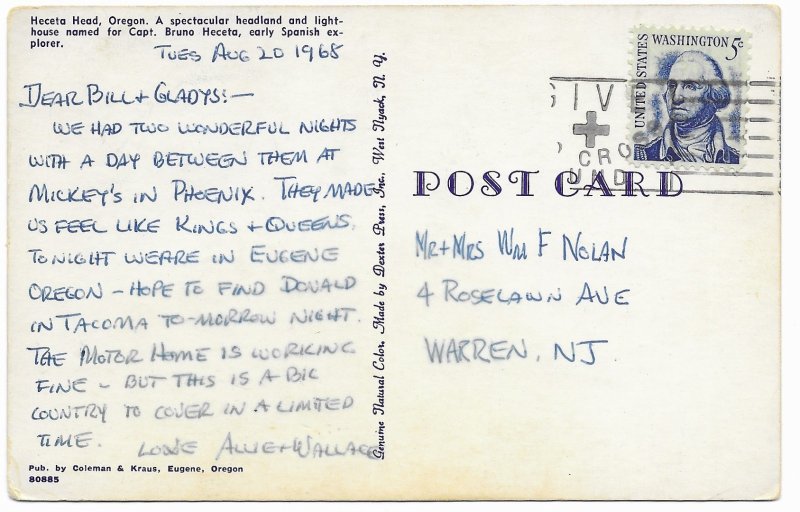 Heceta Head, Oregon. A spectacular headland and light-
house named for Capt. Bruno Heceta, early Spanish ex-
plorer.
TUES AUG 20 1968
DEAR BILL + GLADYS:-
WE HAD TWO WONDERFUL NIGHTS
WITH A DAY BETWEEN THEM AT
MICKEY'S IN PHOENIX. THEY MADE
US FEEL LIKE KINGS + QUEENS.
TONIGHT WE ARE IN EUGENE
OREGON - HOPE TO FIND DONALD
IN TACOMA TO-MORROW NIGHT.
THE MOTOR HOME IS WORKING
FINE - BUT THIS IS A BIG
COUNTRY TO COVER IN A LIMITED
TIME. LOVE ALLIE + WALLACE
Pub. by Coleman & Kraus, Eugene, Oregon
80885
Genuine Natural Color. Made by Dexter Press, Inc. West Nyack, N. Y.
UNITED STATES
WASHINGTON 5c
GIV
CRO
UND
POST CARD
MR + MRS WM F NOLAN
4 ROSELAWN AVE
WARREN, NJ